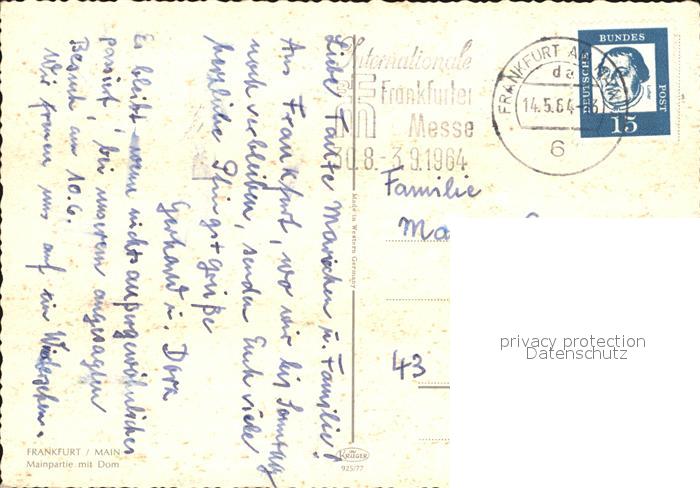 Liebe Tante Mariechen u. Familie!
Aus Frankfurt, wo wir bis Sonntag
noch verbleiben, senden Euch viele
herzliche Pfingstgrüße
Gerhard u. Dora
Es bleibt wenn nichts außergewöhnliches
passiert, bei unserem angesagten
Besuch am 10.6.
Wir freuen uns auf ein Wiedersehen.
FRANKFURT / MAIN
Mainpartie mit Dom
Made in Western Germany
KRÜGER
925/77
Internationale
Frankfurter
Messe
30.8.-3.9.1964
FRANKFURT AM MAIN
da
14.5.64
6
DEUTSCHE
BUNDES
POST
15
Familie
43
privacy protection
Datenschutz